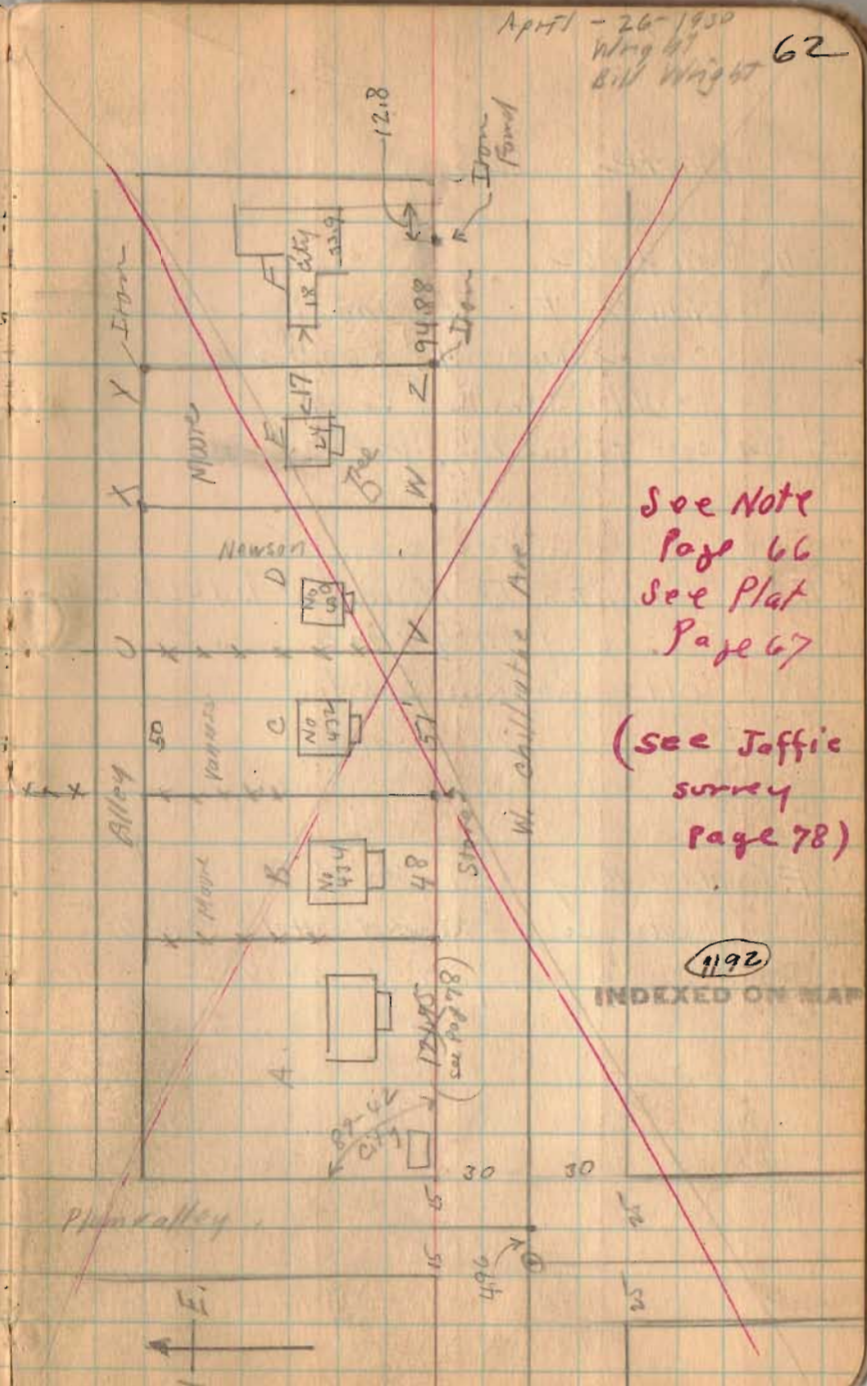 April - 26 - 1930
Wright
Bill Wright
62
12.8
Iron
Found
Iron
F
18
City
32.9
94.88
Iron
Y
Z
Moore
E
24
17
Tree
X
W
Newson
D
No
U
V
50
Vanness
C
No
432
51'
Alley
Stone
W. Chillicothe Ave
Moore
B
No
434
48
A.
(see Page 78)
City
30
30
15
15
25
25
Plum alley
496
E.
See Note
Page 66
See Plat
Page 67
(see Jaffie
survey
page 78)
1192
INDEXED ON MAP